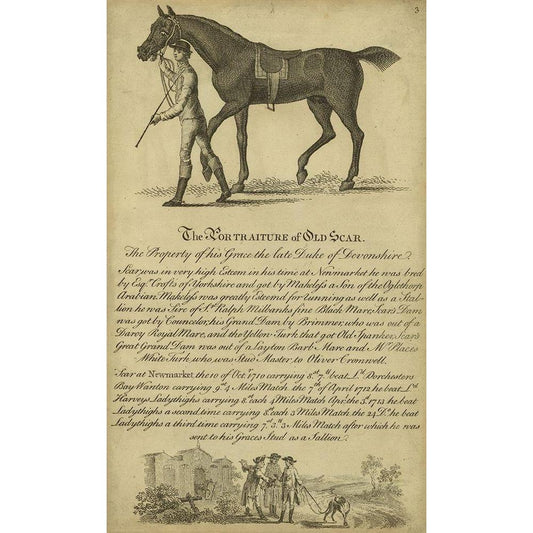 3
The PORTRAITURE of OLD SCAR.
The Property of his Grace the late Duke of Devonshire
Scar was in very high Esteem in his time at Newmarket he was bred
by Esqr. Crofts of Yorkshire and got by Makeless a Son of the Oglethorp
Arabian. Makeless was greatly Esteemd for running as well as a Stal-
lion he was Sire of Sr. Ralph Milbanks fine Black Mare, Scars Dam
was got by Councelor, his Grand Dam by Brimmer, who was out of a
Darcy Royal Mare, and the Yellow Turk that got Old Spanker, Scar's
Great Grand Dam was out of a Layton Barb Mare and Mr. Places
White Turk, who was Stud Master, to Oliver Cromwell.
Scar at Newmarket the 10 of Octr. 1710 carrying 8st. 7lb. beat Ld. Dorchesters
Bay Wanton carrying 9st. 4 Miles Match the 7th of April 1712 he beat Ld.
Harveys Ladythighs carrying 8st. each 4 Miles Match Apr. the 5t. 1713 he beat
Ladythighs a second time carrying 8st. each 3 Miles Match, the 24 Do. he beat
Ladythighs a third time carrying 7st. 3lb. 3 Miles Match after which he was
sent to his Graces Stud as a Sallion.